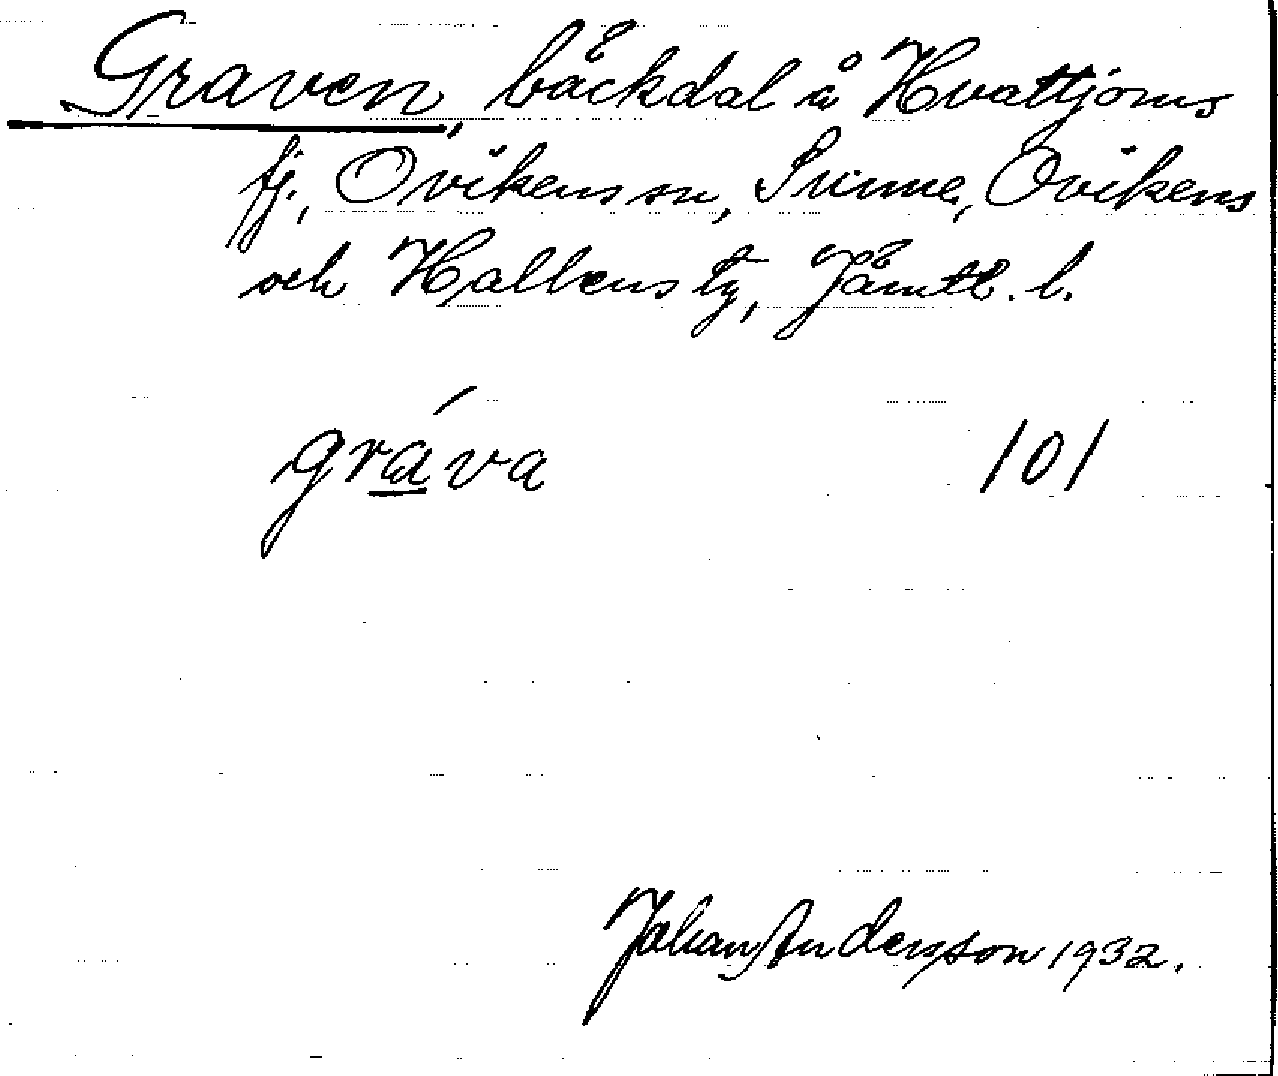 Graven, bäckdal å Hvattjorns
fj., Ovikens sn, Sunne, Ovikens
och Hallens tg, Jämtl. l.
gráva 101
Johan Andersson 1932.